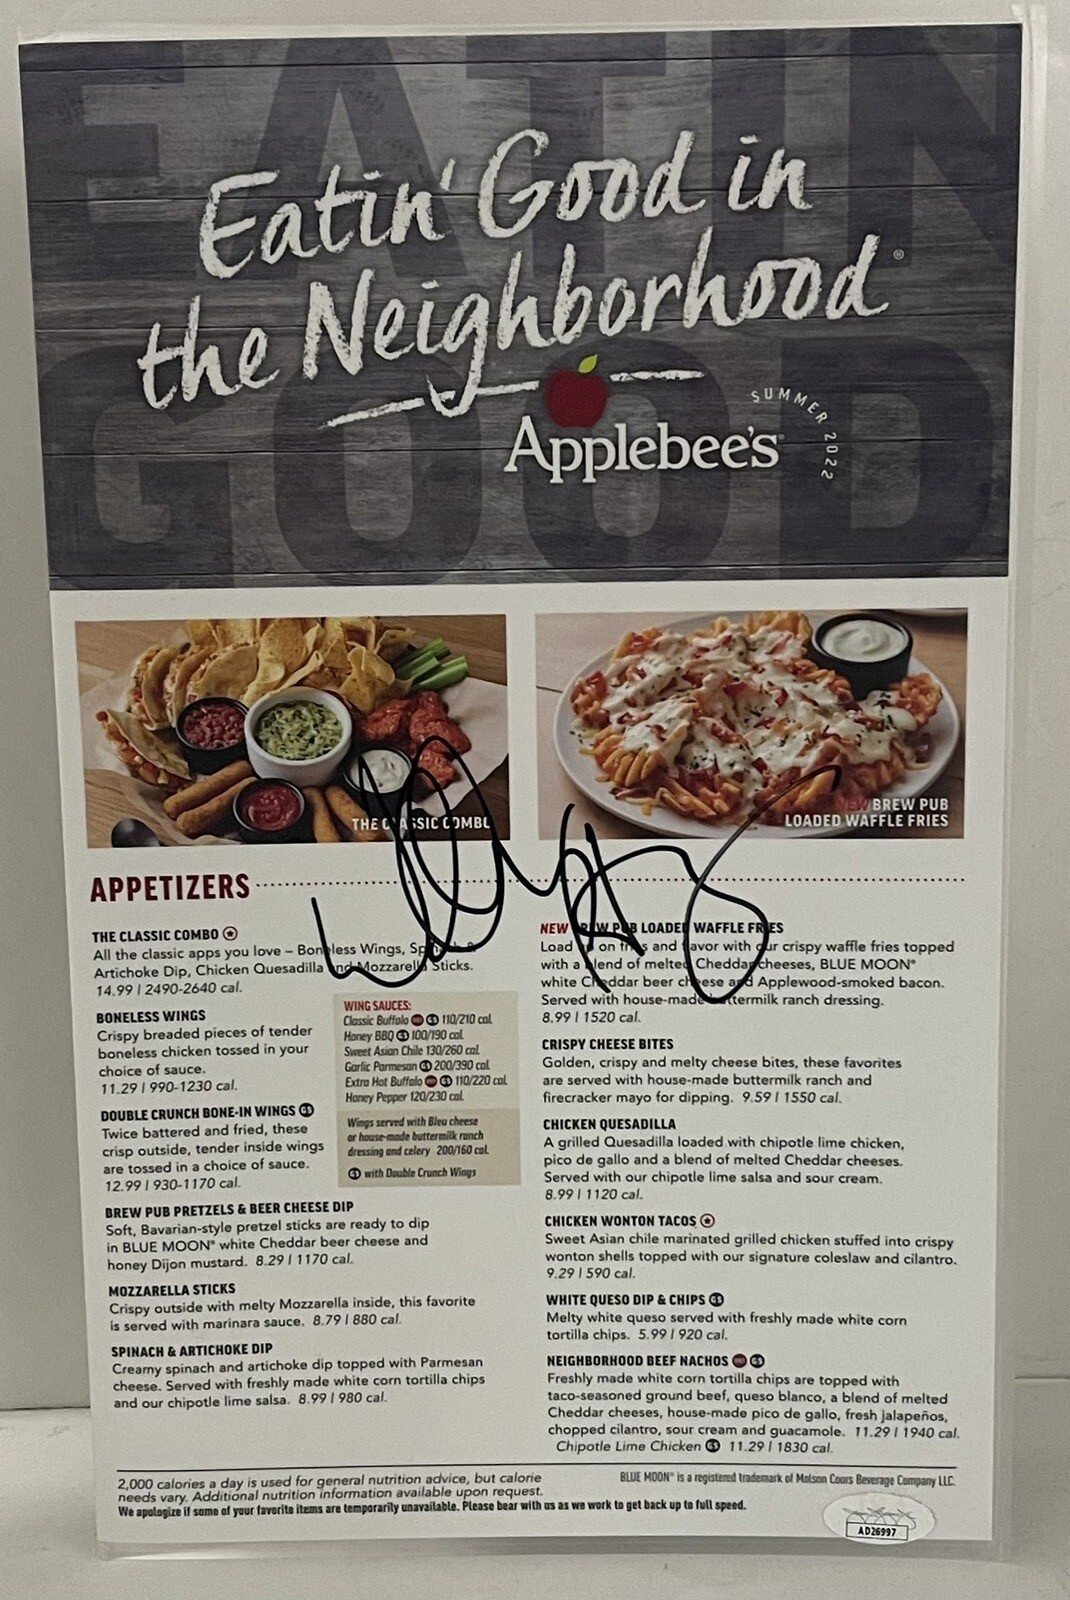 EATIN
GOOD
Eatin' Good in
the Neighborhood®
Applebee's
SUMMER 2022
THE CLASSIC COMBO
NEW BREW PUB
LOADED WAFFLE FRIES
APPETIZERS
THE CLASSIC COMBO
All the classic apps you love – Boneless Wings, Spinach &
Artichoke Dip, Chicken Quesadilla and Mozzarella Sticks.
14.99 | 2490-2640 cal.
BONELESS WINGS
Crispy breaded pieces of tender
boneless chicken tossed in your
choice of sauce.
11.29 | 990-1230 cal.
DOUBLE CRUNCH BONE-IN WINGS
Twice battered and fried, these
crisp outside, tender inside wings
are tossed in a choice of sauce.
12.99 | 930-1170 cal.
WING SAUCES:
Classic Buffalo 110/210 cal.
Honey BBQ 100/190 cal.
Sweet Asian Chile 130/260 cal.
Garlic Parmesan 200/390 cal.
Extra Hot Buffalo 110/220 cal.
Honey Pepper 120/230 cal.
Wings served with Bleu cheese
or house-made buttermilk ranch
dressing and celery 200/160 cal.
with Double Crunch Wings
BREW PUB PRETZELS & BEER CHEESE DIP
Soft, Bavarian-style pretzel sticks are ready to dip
in BLUE MOON® white Cheddar beer cheese and
honey Dijon mustard. 8.29 | 1170 cal.
MOZZARELLA STICKS
Crispy outside with melty Mozzarella inside, this favorite
is served with marinara sauce. 8.79 | 880 cal.
SPINACH & ARTICHOKE DIP
Creamy spinach and artichoke dip topped with Parmesan
cheese. Served with freshly made white corn tortilla chips
and our chipotle lime salsa. 8.99 | 980 cal.
NEW BREW PUB LOADED WAFFLE FRIES
Load up on fries and flavor with our crispy waffle fries topped
with a blend of melted Cheddar cheeses, BLUE MOON®
white Cheddar beer cheese and Applewood-smoked bacon.
Served with house-made buttermilk ranch dressing.
8.99 | 1520 cal.
CRISPY CHEESE BITES
Golden, crispy and melty cheese bites, these favorites
are served with house-made buttermilk ranch and
firecracker mayo for dipping. 9.59 | 1550 cal.
CHICKEN QUESADILLA
A grilled Quesadilla loaded with chipotle lime chicken,
pico de gallo and a blend of melted Cheddar cheeses.
Served with our chipotle lime salsa and sour cream.
8.99 | 1120 cal.
CHICKEN WONTON TACOS
Sweet Asian chile marinated grilled chicken stuffed into crispy
wonton shells topped with our signature coleslaw and cilantro.
9.29 | 590 cal.
WHITE QUESO DIP & CHIPS
Melty white queso served with freshly made white corn
tortilla chips. 5.99 | 920 cal.
NEIGHBORHOOD BEEF NACHOS
Freshly made white corn tortilla chips are topped with
taco-seasoned ground beef, queso blanco, a blend of melted
Cheddar cheeses, house-made pico de gallo, fresh jalapeños,
chopped cilantro, sour cream and guacamole. 11.29 | 1940 cal.
Chipotle Lime Chicken 11.29 | 1830 cal.
2,000 calories a day is used for general nutrition advice, but calorie
needs vary. Additional nutrition information available upon request.
We apologize if some of your favorite items are temporarily unavailable. Please bear with us as we work to get back up to full speed.
BLUE MOON® is a registered trademark of Molson Coors Beverage Company LLC.
AD26997